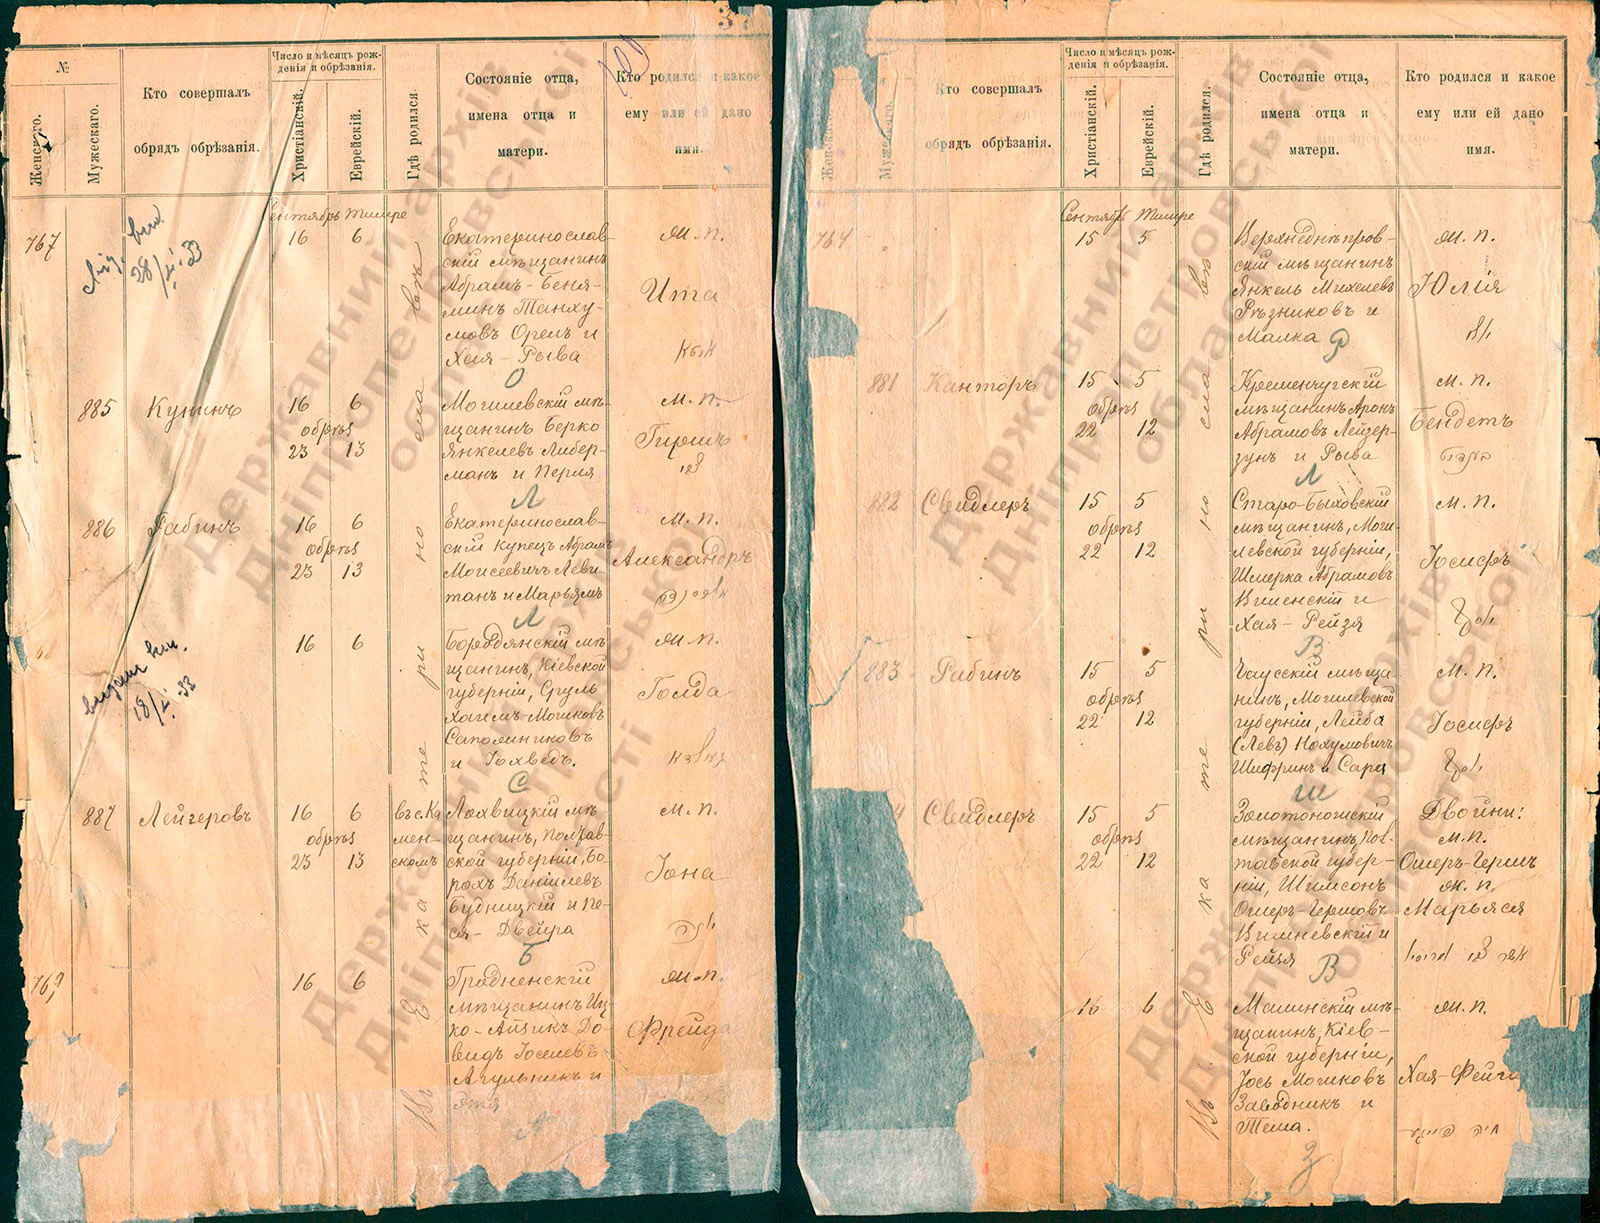 37
№
Женскаго.
Мужескаго.
Кто совершалъ
обрядъ обрѣзанія.
Число и мѣсяцъ рож-
денія и обрѣзанія.
Христіанскій.
Еврейскій.
Гдѣ родился.
Состояніе отца,
имена отца и
матери.
Кто родился и какое
ему или ей дано
имя.
Сентябрь Тишре
767
28/I-33
16 6
Екатеринослав-
скій мѣщанинъ
Абрамъ-Беня-
минъ Танху-
мовъ Орелъ и
Хая-Рыва
О
м.п.
Ита
885 Кунинъ
16 6
обрѣз
23 13
Могилевскій мѣ-
щанинъ Берко
Янкелевъ Либер-
манъ и Перля
Л
м.п.
Гиршъ
886 Рабинъ
16 6
обрѣз
23 13
Екатеринослав-
скій купецъ Абрамъ
Моисеевичъ Леви-
танъ и Марьямъ
Л
м.п.
Александръ
68
18/I-33
16 6
Бородянскій мѣ-
щанинъ, Кіевской
губерніи, Сруль
Хаимъ-Мошковъ
Сапожниковъ
и Іохведъ.
С
м.п.
Голда
887 Лейзеровъ
16 6
обрѣз
23 13
въ с. Ка
мен-
скомъ
Лохвицкій мѣ-
щанинъ, Полтав-
ской губерніи, Бо-
рохъ Даніилевъ
Будницкій и Пе-
ся-Двейра
Б
м.п.
Іона
769
16 6
Гродненскій
мѣщанинъ Иц-
ко-Айзикъ До-
видъ Іоселевъ
Агульникъ и
Этя
А
м.п.
Фрейда
Въ Екатеринославѣ
Женскаго.
Мужескаго.
Кто совершалъ
обрядъ обрѣзанія.
Число и мѣсяцъ рож-
денія и обрѣзанія.
Христіанскій.
Еврейскій.
Гдѣ родился.
Состояніе отца,
имена отца и
матери.
Кто родился и какое
ему или ей дано
имя.
Сентябрь Тишре
764
15 5
Верхнеднѣпров-
скій мѣщанинъ
Янкель Михелевъ
Рѣзниковъ и
Малка
Р
м.п.
Юлія
881 Канторъ
15 5
обрѣз
22 12
Кременчугскій
мѣщанинъ Аронъ
Абрамовъ Лейзер-
зунъ и Рыва
Л
м.п.
Бендетъ
882 Свидлеръ
15 5
обрѣз
22 12
Старо-Быховскій
мѣщанинъ, Моги-
левской губерніи,
Шмерка Абрамовъ
Виленскій и
Хая-Рейзя
В
м.п.
Іосифъ
883 Рабинъ
15 5
обрѣз
22 12
Чаусскій мѣща-
нинъ, Могилевской
губерніи, Лейба
(Левъ) Нохумовичъ
Шифринъ и Сара
Ш
м.п.
Іосифъ
4 Свидлеръ
15 5
обрѣз
22 12
Золотоношскій
мѣщанинъ, Пол-
тавской губер-
ніи, Шимсонъ
Ошеръ-Гершовъ
Вишневскій и
Рейзя
В
Двойни:
м.п.
Ошеръ-Гершъ
м.п.
Марьяся
16 6
Машинскій мѣ-
щанинъ, Кіев-
ской губерніи,
Іось Мошковъ
Заводникъ и
Тема.
З
м.п.
Хая-Фейга
חיה פייגע
Въ Екатеринославѣ
Державний архів
Дніпропетровської
області